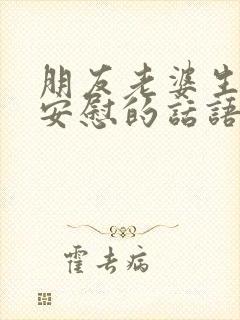 朋友老婆生
安慰的話語
霍去病